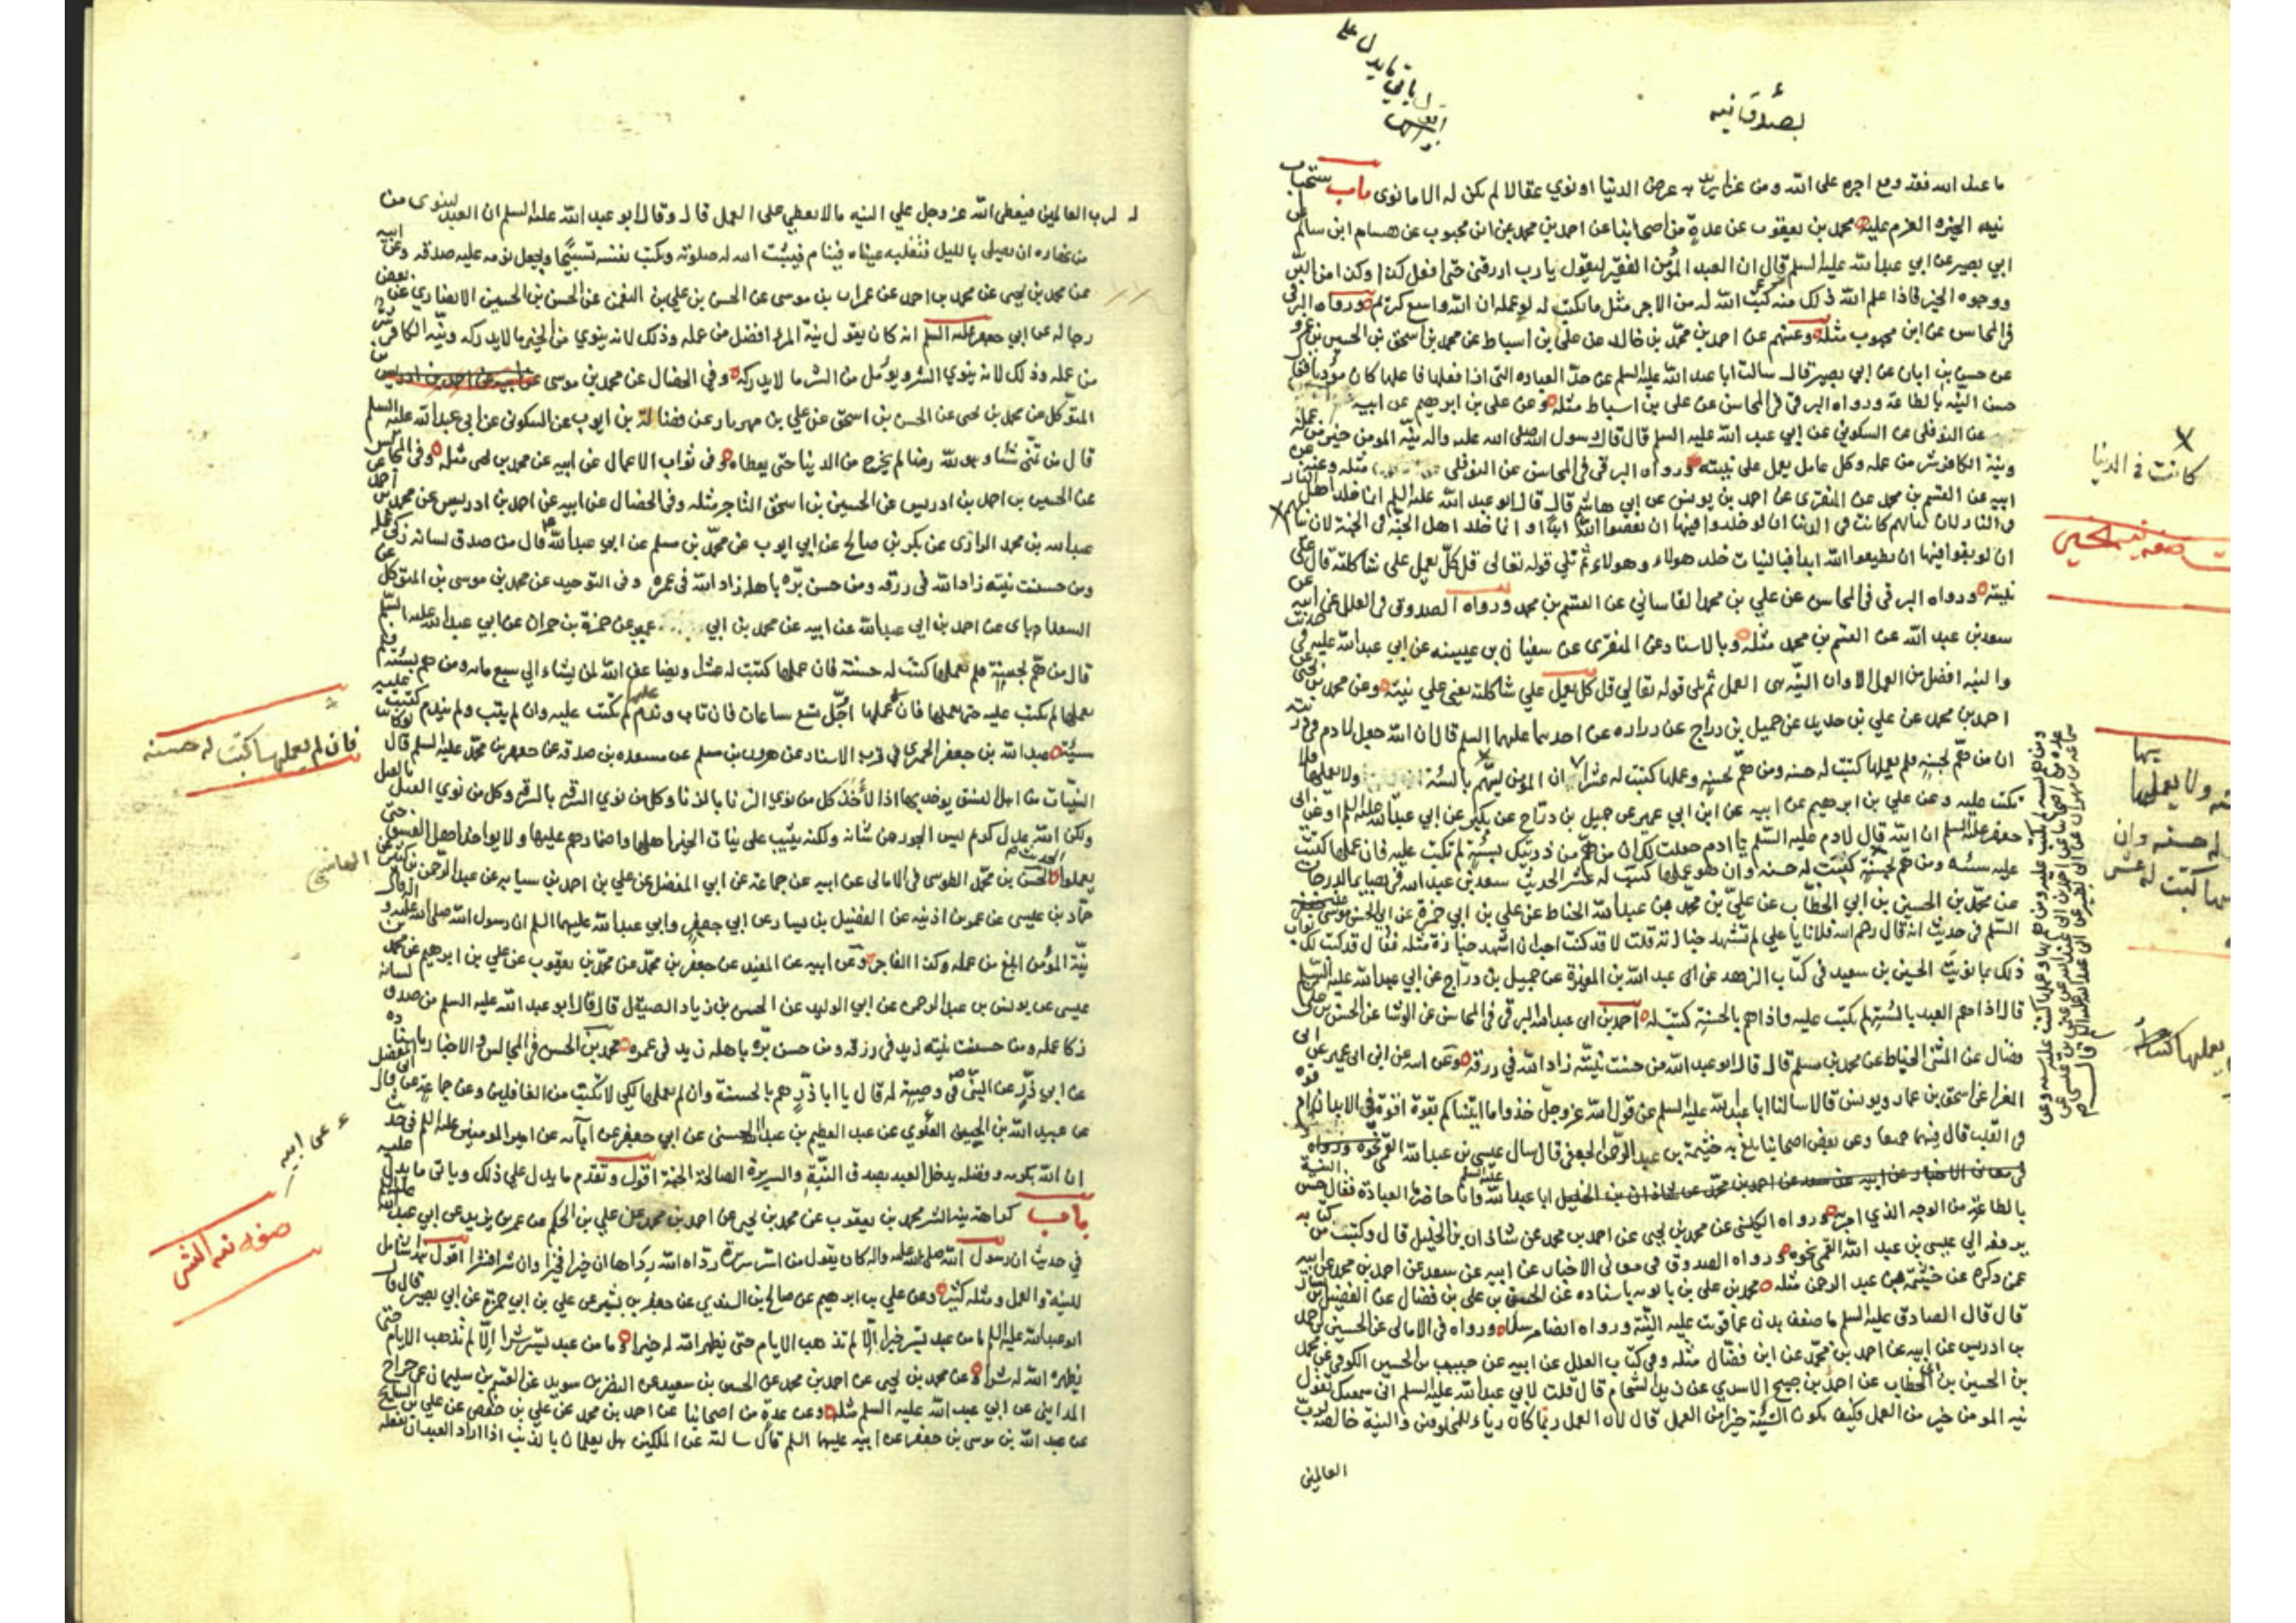 ما عند الله فقد وقع اجره على الله ومن غزا يريد به عرض الدنيا او نوى عقالا لم يكن له الا ما نوى باب استحباب
نية الخير والعزم عليه محمد بن يعقوب عن عدة من اصحابنا عن احمد بن محمد عن ابن محبوب عن هشام ابن سالم عن
ابي بصير عن ابي عبدالله عليه السلم قال ان العبد المؤمن الفقير ليقول يا رب ارزقني حتى افعل كذا وكذا من البر
ووجوه الخير فاذا علم الله ذلك منه كتب الله له من الاجر مثل ما يكتب له لو عمله ان الله واسع كريم ورواه البرقي
في المحاسن عن ابن محبوب مثله وعنهم عن احمد بن محمد بن خالد عن علي بن اسباط عن محمد بن اسحق بن الحسين بن عمرو
عن حسن بن ابان عن ابي بصير قال سالت ابا عبد الله عليه السلم عن حد العبادة التي اذا فعلها فاعلها كان مؤديا فقال
حسن النية بالطاعة ورواه البرقي في المحاسن عن علي بن اسباط مثله وعن علي بن ابرهيم عن ابيه
عن النوفلي عن السكوني عن ابي عبد الله عليه السلم قال قال رسول الله صلى الله عليه واله نية المومن خير من عمله
ونية الكافر شر من عمله وكل عامل يعمل على نيته ورواه البرقي في المحاسن عن النوفلي مثله وعن علي عن
ابيه عن القسم بن محمد عن المنقري عن احمد بن يونس عن ابي هاشم قال قال ابو عبد الله عليه السلم انما خلد اهل النار
في النار لان نياتهم كانت في الدنيا ان لو خلدوا فيها ان يعصوا الله ابدا وانما خلد اهل الجنة في الجنة لان نياتهم
ان لو بقوا فيها ان يطيعوا الله ابدا فبالنيات خلد هولاء وهولاء ثم تلى قوله تعالى قل كل يعمل على شاكلته قال على
نيته ورواه البرقي في المحاسن عن علي بن محمد القاساني عن القسم بن محمد ورواه الصدوق في العلل عن ابيه عن
سعد بن عبد الله عن القسم بن محمد مثله وبالاسناد عن المنقري عن سفيان بن عيينه عن ابي عبدالله عليه في حديث
والنية افضل من العمل الا وان النية هى العمل ثم تلى قوله تعالى قل كل يعمل على شاكلته يعني على نيته وعن محمد بن يحيى عن
احمد بن محمد عن علي بن حديد عن جميل بن دراج عن زراره عن احدهما عليهما السلم قال ان الله جعل لادم في ذريته
ان من هم بحسنة فلم يعملها كتبت له حسنه ومن هم بحسنة وعملها كتبت له عشرا ان المومن ليهم بالسيئة ولا يعملها فلا
تكتب عليه وعن علي بن ابرهيم عن ابيه عن ابن ابي عمير عن جميل بن دراج عن بكير عن ابي عبدالله عليه السلم او عن ابى
جعفر عليه السلم ان الله قال لادم عليه السلم يا ادم جعلت لك ان من هم من ذريتك بسيئة لم تكتب عليه فان عملها كتبت
عليه سيئه ومن هم بحسنة كتبت له حسنه وان هو عملها كتبت له عشر الحديث سعد بن عبد الله في بصاير الدرجات
عن محمد بن الحسين بن ابي الخطاب عن علي بن محمد بن عبدالله الحناط عن علي بن ابي حمزة عن ابي الحسن موسى بن جعفر عليه
السلم في حديث انه قال رحم الله فلانا يا علي لم تشهد جنازته قلت لا قد كنت احب ان اشهد جنازة مثله فقال قد كتب لك ثواب
ذلك بما نويت الحسين بن سعيد في كتاب الزهد عن ابى عبد الله بن المغيرة عن جميل بن دراج عن ابي عبدالله عليه السلم
قال اذا هم العبد بالسيئة لم تكتب عليه واذا هم بالحسنة كتبت له احمد بن ابى عبدالله البرقي في المحاسن عن الوشا عن الحسن بن علي بن
فضال عن المثنى الحناط عن محمد بن مسلم قال قال ابو عبد الله من حسنت نيته زاد الله في رزقه وعن ابيه عن ابن ابى عمير عن ابى
المغرا عن اسحق بن عمار ويونس قالا سالنا ابا عبدالله عليه السلم عن قول الله عز وجل خذوا ما اتيناكم بقوة اقوة في الابدان ام قوة
في القلب قال فيهما جميعا وعن بعض اصحابنا بلغ به خيثمة بن عبد الرحمن الجعفي قال سال عيسى بن عبدالله القمي
في معاني الاخبار عن ابيه عن سعد عن احمد بن محمد عن شاذان بن الخليل ابا عبدالله عليه السلم وانا حاضر ما العبادة فقال حسن النية
بالطاعة من الوجه الذي امر به ورواه الكليني عن محمد بن يحيى عن احمد بن محمد عن شاذان بن الخليل قال وكتبت من كتابه
يرفعه الى عيسى بن عبد الله القمي نحوه ورواه الصدوق في معاني الاخبار عن ابيه عن سعد عن احمد بن محمد عن ابيه
عمن ذكره عن خيثمة بن عبد الرحمن مثله محمد بن علي بن بابويه باسناده عن الحسن بن علي بن فضال عن الفضيل بن يسار
قال قال الصادق عليه السلم ما ضعف بدن عما قويت عليه النية ورواه ايضا مرسلا ورواه في الامالي عن الحسين بن احمد
بن ادريس عن ابيه عن احمد بن محمد عن ابن فضال مثله وفي كتاب العلل عن ابيه عن حبيب بن الحسين الكوفي عن محمد
بن الحسين بن ابي الخطاب عن احمد بن صبيح الاسدي عن زيد الشحام قال قلت لابي عبد الله عليه السلم اني سمعتك تقول
نية المومن خير من العمل فكيف تكون النية خيرا من العمل قال لان العمل ربما كان رياء للمخلوقين والنية خالصة لرب
العالمين
كانت في الدنيا
لرب العالمين فيعطى الله عز وجل علي النيه ما لا يعطي على العمل قال وقال ابو عبد الله عليه السلم ان العبد لينوى من
نهاره ان يصلي بالليل فتغلبه عيناه فينام فيثبت الله له صلوته ويكتب نفسه تسبيحا ويجعل نومه عليه صدقه وعن ابيه
عن محمد بن يحيى عن محمد بن احمد عن عمران بن موسى عن الحسن بن علي بن النعمن عن الحسن بن الحسين الانصاري عن بعض
رجاله عن ابي جعفر عليه السلم انه كان يقول نية المؤمن افضل من عمله وذلك لانه ينوي من الخير ما لا يدركه ونية الكافر شر
من عمله وذلك لانه ينوي الشر ويؤمل من الشر ما لا يدركه وفي الخصال عن محمد بن موسى عن ابيه عن احمد بن ادريس بن
المتوكل عن محمد بن يحيى عن الحسن بن اسحق عن علي بن مهزيار عن فضالة بن ايوب عن السكوني عن ابي عبدالله عليه السلم
قال من تمنى شيئا وهو لله رضا لم يخرج من الدنيا حتى يعطاه وفي ثواب الاعمال عن ابيه عن محمد بن يحيى مثله وفي المجالس
عن الحسين بن احمد بن ادريس عن الحسين بن اسحق التاجر مثله وفي الخصال عن ابيه عن احمد بن ادريس عن محمد بن احمد عن
عبدالله بن محمد الرازي عن بكر بن صالح عن ابي ايوب عن محمد بن مسلم عن ابي عبدالله قال من صدق لسانه زكى عمله
ومن حسنت نيته زاد الله في رزقه ومن حسن بره باهله زاد الله في عمره وفي التوحيد عن محمد بن موسى بن المتوكل عن
السعدابادى عن احمد بن ابى عبدالله عن ابيه عن محمد بن ابي عمير عن حمزة بن حمران عن ابي عبدالله عليه السلم
قال من هم بحسنة فلم يعملها كتبت له حسنة فان عملها كتبت له عشر ويضاعف الله لمن يشاء الي سبع مائه ومن هم بسيئة فلم
يعملها لم يكتب عليه حتى يعملها فان عملها اجل تسع ساعات فان تاب وندم عليها لم تكتب عليه وان لم يتب ولم يندم كتبت عليه
سيئة عبدالله بن جعفر الحميري في قرب الاسناد عن هرون بن مسلم عن مسعده بن صدقه عن جعفر بن محمد عليه السلم قال لو كانت
النيات من اهل الفسق يوخذ بها اهلها اذا لأخذ كل من نوي الزنا بالزنا وكل من نوي السرقه بالسرقه وكل من نوي القتل بالقتل
ولكن الله عدل كريم ليس الجور من شانه ولكنه يثيب على نيات الخير اهلها واضمارهم عليها ولا يواخذ اهل الفسوق حتى
يعملوا الحديث الحسن بن محمد الطوسى في الامالي عن ابيه عن جماعة عن ابي المفضل عن علي بن احمد بن سيابه عن عبد الرحمن بن كثير عن
حماد بن عيسى عن عمر بن اذينه عن الفضيل بن يسار عن ابي جعفر وابي عبدالله عليهما السلم ان رسول الله صلى الله عليه واله قال
نية المؤمن ابلغ من عمله وكذا الفاجر وعن ابيه عن المفيد عن جعفر بن محمد عن محمد بن يعقوب عن علي بن ابرهيم عن محمد بن
عيسى عن يونس بن عبد الرحمن عن ابي الوليد عن الحسن بن زياد الصيقل قال قال ابو عبد الله عليه السلم من صدق لسانه
زكا عمله ومن حسنت نيته زيد في رزقه ومن حسن بره باهله زيد في عمره محمد بن الحسن في المجالس والاخبار باسناده
عن ابي ذر عن النبي ص في وصيته له قال يا ابا ذر هم بالحسنة وان لم تعملها لكي لا تكتب من الغافلين وعن جماعة عن ابي المفضل
عن عبيد الله بن الحسين العلوي عن عبد العظيم بن عبدالله الحسني عن ابي جعفر عن آبائه عن امير المومنين عليه السلم في حديث قال
ان الله بكرمه وفضله يدخل العبد بصدق النية والسريرة الصالحة الجنة اقول وتقدم ما يدل على ذلك وياتى ما يدل عليه
باب كراهة نية الشر محمد بن يعقوب عن محمد بن يحيى عن احمد بن محمد عن علي بن الحكم عن عمر بن يزيد عن ابي عبد الله عليه السلم
في حديث ان رسول الله صلى الله عليه واله كان يقول من اسر سريرة رداه الله رداها ان خيرا فخيرا وان شرا فشرا اقول هذا شامل
للنية والعمل ومثله كثير وعن علي بن ابرهيم عن صالح بن السندي عن جعفر بن بشير عن علي بن ابي حمزة عن ابي بصير قال قال
ابو عبدالله عليه السلم ما من عبد يسر خيرا الا لم تذهب الايام حتى يظهر الله له خيرا وما من عبد يسر شرا الا لم تذهب الايام حتى
يظهر الله له شرا وعن محمد بن يحيى عن احمد بن محمد عن الحسين بن سعيد عن النضر بن سويد عن القسم بن سليمان عن جراح
المدايني عن ابي عبد الله عليه السلم مثله وعن عدة من اصحابنا عن احمد بن محمد عن علي بن حفص عن علي بن السايح
عن عبد الله بن موسى بن جعفر عن ابيه عليهما السلم قال سالته عن الملكين هل يعلمان بالذنب اذا اراد العبد ان يفعله
فان لم يعملها كتبت له حسنة
عن ابيه